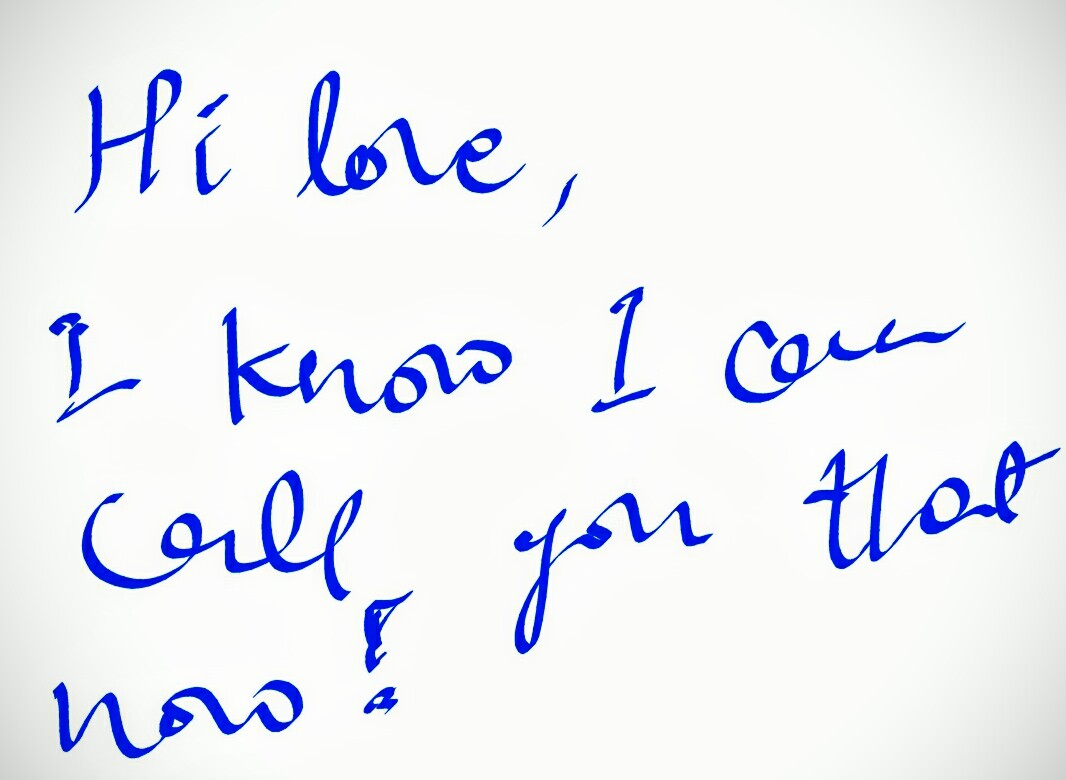 Hi love,
I know I can
call you that
now!